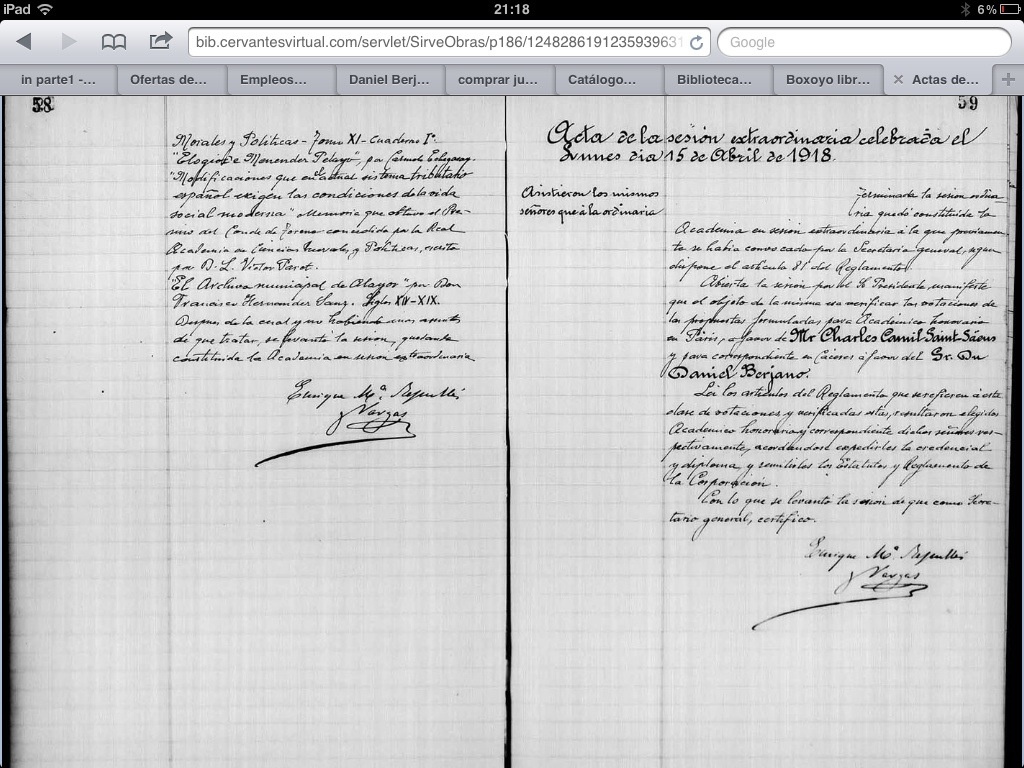 iPad
21:18
6%
bib.cervantesvirtual.com/servlet/SirveObras/p186/1248286191235939631
Google
in parte1 -...
Ofertas de...
Empleos...
Daniel Berj...
comprar ju...
Catálogo...
Biblioteca...
Boxoyo libr...
Actas de...
58
Morales y Politicas - Tomo XI - Cuaderno 1º
"Elogio de Menendez Pelayo", por Carmelo Echegaray.
"Modificaciones que en el actual sistema tributario
español exigen las condiciones de la vida
social moderna" Memoria que obtuvo el Pre-
mio del Conde de Toreno concedido por la Real
Academia de Ciencias Morales y Politicas, escrita
por D. L. Victor Paret.
"El Archivo municipal de Alayor" por Don
Francisco Hernandez Sanz. Siglos XIV-XIX.
Despues de lo cual y no habiendo mas asuntos
de que tratar, se levantó la sesion, quedando
constituida la Academia en sesion extraordinaria
Enrique Mª. Repullés
y Vargas
59
Acta de la sesión extraordinaria celebrada el
Lunes dia 15 de Abril de 1918.
Asistieron los mismos
señores que á la ordinaria
Terminada la sesion ordina
ria quedó constituida la
Academia en sesion extraordinaria á la que previamen-
te se habia convocado por la Secretaria general, segun
dispone el articulo 81 del Reglamento.
Abierta la sesion por el Sr Presidente, manifestó
que el objeto de la misma era verificar las votaciones de
las propuestas formuladas, para Académico honorario
en Paris, a favor de Mr Charles Camil Saint Säens
y para correspondiente en Cáceres á favor del Sr. Dn
Daniel Berjano.
Leí los articulos del Reglamento que se refieren á esta
clase de votaciones y verificadas estas, resultaron elegidos
Academico honorario y correspondiente dichos señores res-
pectivamente, acordandose expedirles la credencial
y diploma y remitirles los Estatutos y Reglamento de
la Corporacion.
Con lo que se levantó la sesion de que como Secre-
tario general, certifico.
Enrique Mª Repullés
y Vargas